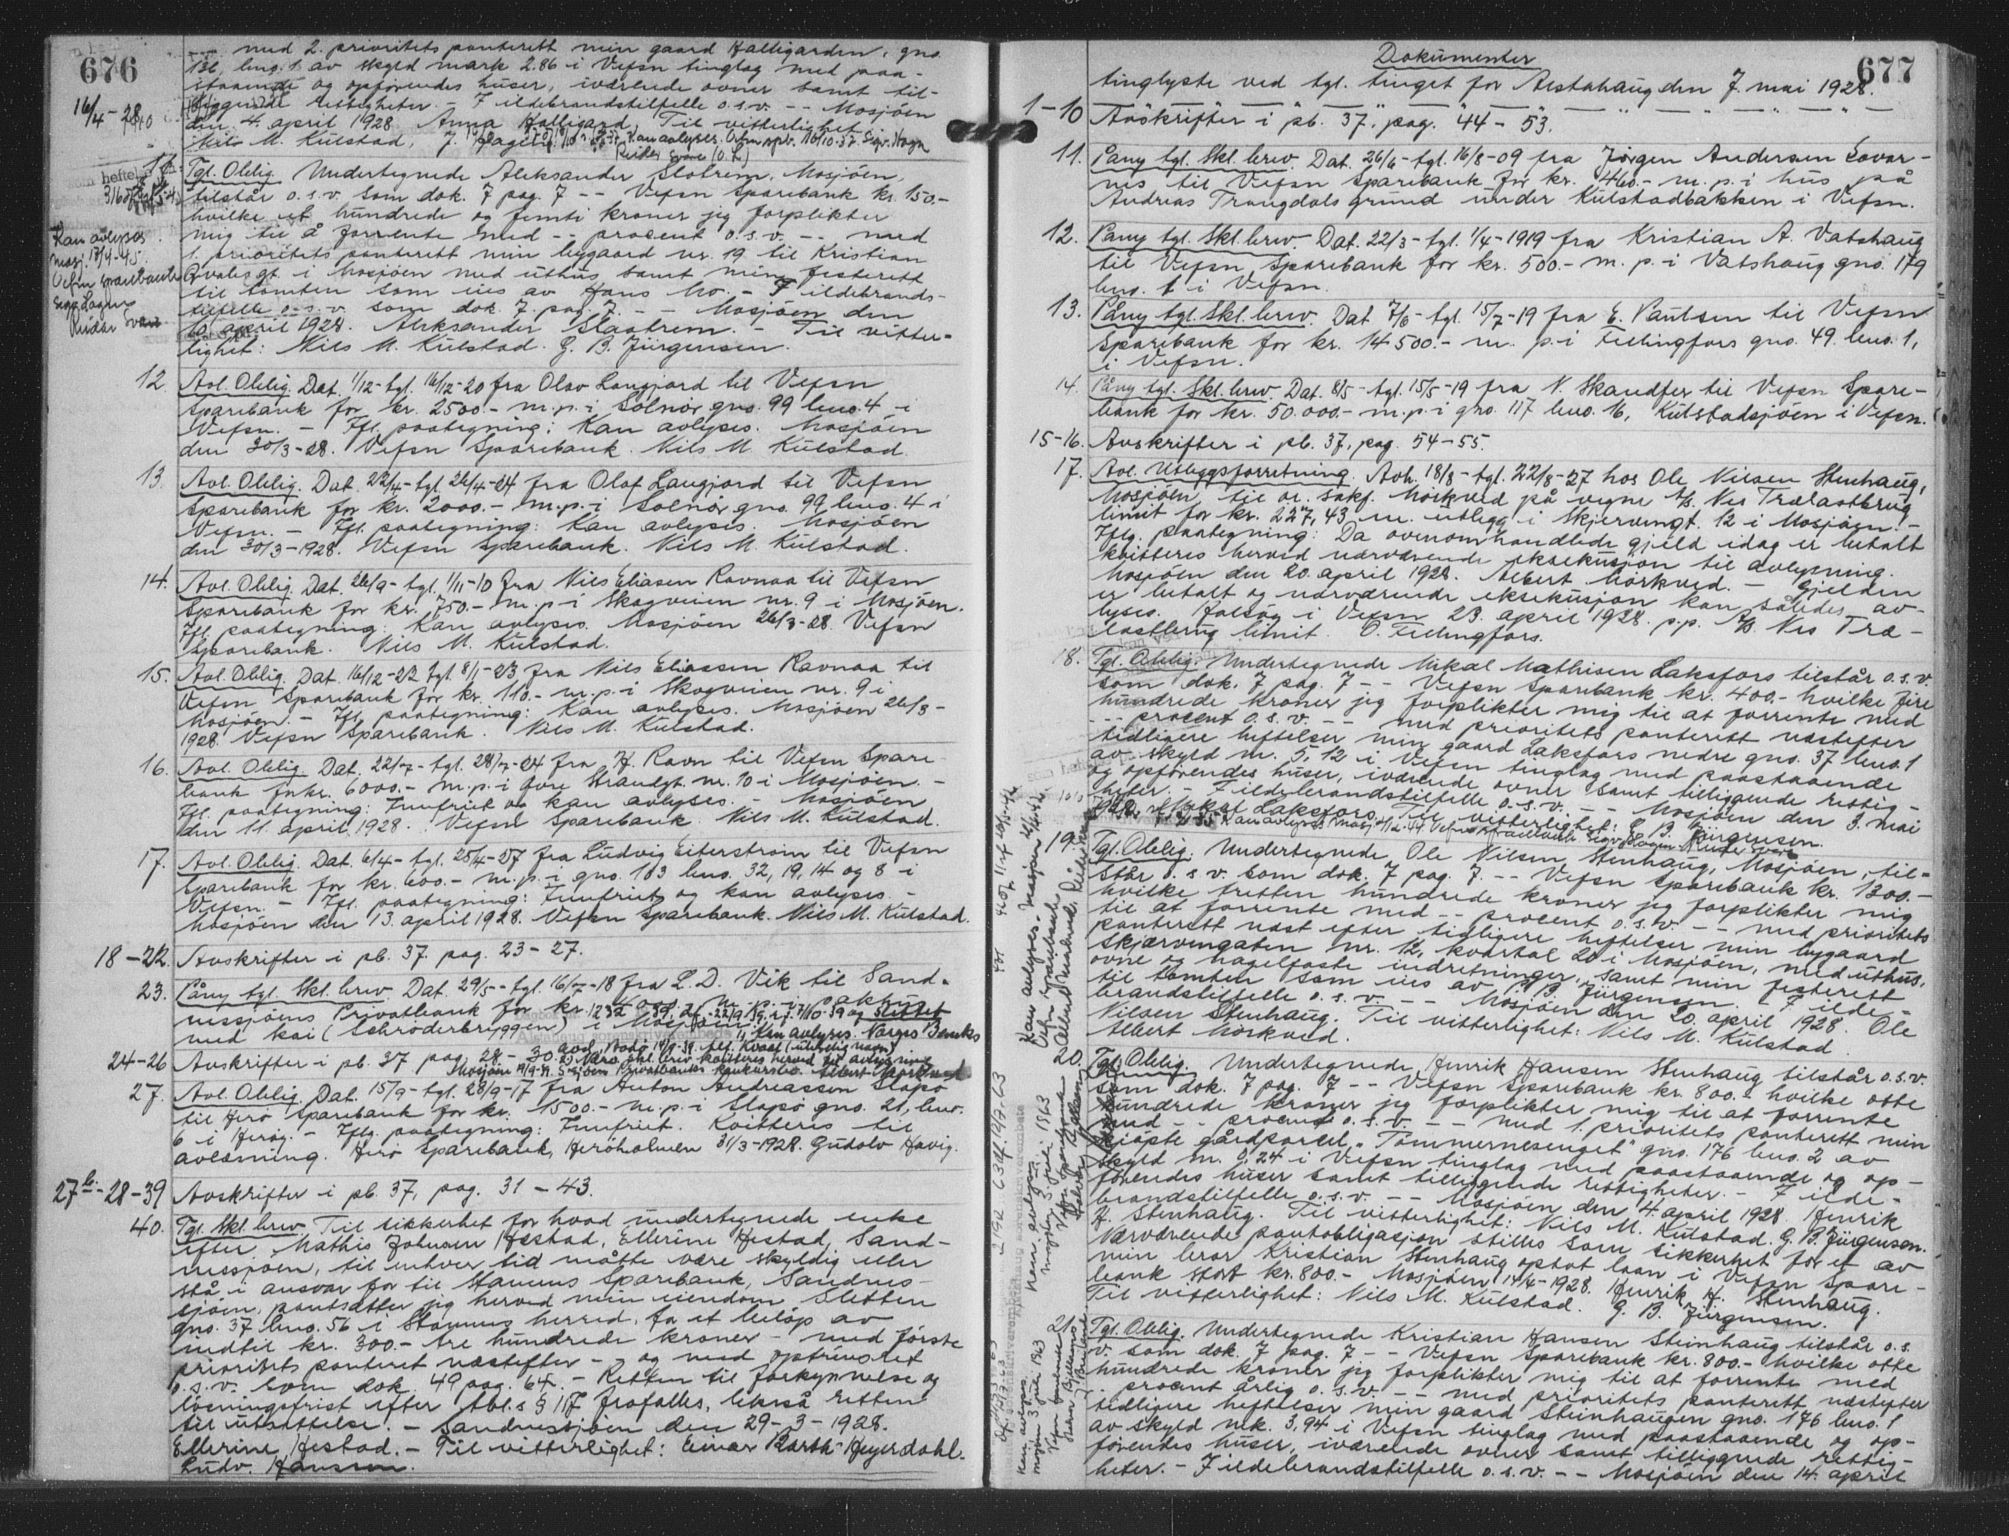 676
- - med 2. prioritets panterett min gaard Halligarden, gno.
131, bno. 1 av skyld mark 2.86 i Vefsn tinglag med paa-
staaende og opførendes huser, iværende ovner samt til-
liggende rettigheter. - I ildebrandstilfelle o.s.v. - - Mosjøen
16/4-28
den 4. april 1928. Anna Halligard. Til vitterlighet
Nils M. Kulstad. J. Kan avlyses. Vefsn spb. 16/10-37. Sigv. Hagen
Reidar Svare
Tgl. Oblig. Undertegnede Aleksander Slotrem, Mosjøen,
tilstår o.s.v. som dok. 7 pag. 7 - - Vefsn Sparebank kr. 150.-
hvilke et hundrede og femti kroner jeg forplikter
mig til å forrente med - - procent o.s.v. - - med
1. prioritets panterett min bygaard nr. 19 til Kristian
Qvalesgt. i Mosjøen med uthus samt min festerett
til tomten som eies av Hans Mo. - I ildebrands-
tilfelle o.s.v. som dok. 7 pag. 7. - - Mosjøen den
10. april 1928. Aleksander Slaatrem. - Til vitter-
lighet: Nils M. Kulstad. G. B. Jürgensen.
Kan avlyses.
Mosj. 13/4-45.
Vefsn Sparebank
Sigv. Hagen
Reidar Svare
12. Avl. Oblig. Dat. 1/12- tgl. 16/12-20 fra Olav Langjord til Vefsn
Sparebank for kr. 2500.- m.p. i Solnör gno. 99 bno. 4 i
Vefsn. - Ifl. paategning: Kan avlyses. Mosjøen
den 30/3-28. Vefsn Sparebank. Nils M. Kulstad.
13. Avl. Oblig. Dat. 22/4- tgl. 26/4-24 fra Olaf Langjord til Vefsn
Sparebank for kr. 2000.- m.p. i Solnör gno. 99 bno. 4 i
Vefsn. - Ifl. paategning: Kan avlyses. Mosjøen
den 30/3-1928. Vefsn Sparebank. Nils M. Kulstad.
14. Avl. Oblig. Dat. 26/9- tgl. 1/11-10 fra Nils Eliasen Ravnaa til Vefsn
Sparebank for kr. 750.- m.p. i Skogveien nr. 9 i Mosjøen.
Ifl. paategning: Kan avlyses. Mosjøen 26/3-28. Vefsn
Sparebank. Nils M. Kulstad.
15. Avl. Oblig. Dat. 16/12-22 tgl. 8/1-23 fra Nils Eliassen Ravnaa til
Vefsn Sparebank for kr. 110.- m.p. i Skogveien nr. 9 i
Mosjøen. - Ifl. paategning: Kan avlyses. Mosjøen 26/3-
1928. Vefsn Sparebank. Nils M. Kulstad.
16. Avl. Oblig. Dat. 22/7- tgl. 28/7-24 fra H. Ravn til Vefsn Spare-
bank for kr. 6000.- m.p. i Øvre Strandgt. nr. 10 i Mosjøen. -
Ifl. paategning: Innfriet og kan avlyses. - Mosjøen
den 11. april 1928. Vefsn Sparebank. Nils M. Kulstad.
17. Avl. Oblig. Dat. 6/4- tgl. 25/4-27 fra Ludvig Eiterstrøm til Vefsn
Sparebank for kr. 600.- m.p. i gno. 103 bno. 32, 19, 14 og 8 i
Vefsn. - Ifl. paategning: Innfriet og kan avlyses. -
Mosjøen den 13. april 1928. Vefsn Sparebank. Nils M. Kulstad.
18-22. Avskrifter i pb. 37. pag. 23-27.
23. Påny tgl. Skl. brev. Dat. 29/5- tgl. 16/7-18 fra L. D. Vik til Sand-
nessjøens Privatbank for kr.
med kai (Schrøderbryggen) i Mosjøen. Kan avlyses. Norges Banks
24-26 Avskrifter i pb. 37 pag. 28-30.
27. Avl. Oblig. Dat. 15/9- tgl. 28/9-17 fra Anton Andreassen Slapø
til Herø Sparebank for kr. 1500.- m.p. i Slapø gno. 21, bno.
6 i Herøy. - Iflg. paategning: Innfriet. Kvitteres til
avlæsning. Herø Sparebank, Herøholmen 31/3-1928. Gudolv Havig.
27 b.-28-39 Avskrifter i pb. 37, pag. 31-43.
40. Tgl. Skl. brev. Til sikkerhet for hvad undertegnede enke
efter Mathis Johnsen Hestad, Ellerine Hestad, Sand-
nessjøen, til enhver tid måtte være skyldig eller
stå i ansvar for til Stamnes Sparebank, Sandnes-
sjøen, pantsetter jeg herved min eiendom Sletten
gno. 37 bno. 56 i Stamnes herred, for et beløp av
indtil kr. 300.- tre hundrede kroner - med første
prioritets panteret næstefter - og med optrinsret
o.s.v. som dok. 49 pag. 64. - Retten til forkynnelse og
løsningsfrist efter tbl.s § 117 frafalles, likeså retten
til utsettelse. - Sandnessjøen den 29-3-1928.
Ellerine Hestad. - Til vitterlighet: Einar Barth-Heyerdahl.
Ludv. Hansson.
677
Dokumenter
tinglyste ved tgl. tinget for Alstahaug den 7. mai 1928.
1-10 Avskrifter i pb. 37, pag. 44-53.
11. Påny tgl. Skl. brev. Dat. 26/6- tgl. 16/8-09 fra Jørgen Andersen Lovar-
nes til Vefsn Sparebank for kr. 460.- m.p. i hus på
Andreas Trongdals grund under Kulstadbakken i Vefsn.
12. Påny tgl. Skl. brev. Dat. 22/3- tgl. 1/4-1919 fra Kristian A. Vatshaug
til Vefsn Sparebank for kr. 500.- m.p. i Vatshaug gno. 179
bno. 1 i Vefsn.
13. Påny tgl. Skl. brev. Dat. 7/6- tgl. 15/7-19 fra E. Paulsen til Vefsn
Sparebank for kr. 14500.- m.p. i Fellingfors gno. 49 bno. 1,
i Vefsn.
14. Påny tgl. Skl. brev. Dat. 8/5- tgl. 15/5-19 fra N. Skandfer til Vefsn Spare-
bank for kr. 50.000.- m.p. i gno. 117 bno. 16, Kulstadsjøen i Vefsn.
15-16. Avskrifter i pb. 37, pag. 54-55.
17. Avl. Utleggsforretning. Avh. 18/8- tgl. 22/8-27 hos Ole Nilsen Stenhaug,
Mosjøen, til or. sakf. Mörkved på vegne A/S. Nes Trælastbrug
limit for kr. 227,43 m. utlegg i Skjervengt. 12 i Mosjøen. -
Iflg. paategning: Da ovenomhandlede gjeld idag er betalt
kvitteres herved nærværende eksekusjon til avlysning.
Mosjøen den 20. april 1928. Albert Mörkved. - Gjelden
er betalt og nærværende eksekusjon kan således av-
lyses. Folsøg i Vefsn 23. april 1928. p.p. A/S. Nes Træ-
lastbrug limit. O. Fellingfors.
18. Tgl. Oblig. Undertegnede Mikal Mathisen Laksfors tilstår o.s.v.
som dok. 7 pag. 7 - - Vefsn Sparebank kr. 400.- hvilke fire
hundrede kroner jeg forplikter mig til at forrente med
- - procent o.s.v. - - med prioritets panterett næstefter
tidligere heftelser min gaard Laksfors nedre gno. 37 bno. 1
av skyld m. 5,12 i Vefsn tinglag med paastaaende
og opførendes huser, iværende ovner samt tilliggende rettig-
heter. - I ildebrandstilfelle o.s.v. - - Mosjøen den 3. mai
1928. Mikal Laksfors. Til vitterlighet: G. B. Jürgensen.
19. Tgl. Oblig. Undertegnede Ole Nilsen Stenhaug, Mosjøen, til-
står o.s.v. som dok. 7 pag. 7. - - Vefsn Sparebank kr. 1300.-
hvilke tretten hundrede kroner jeg forplikter mig
til at forrente med - - procent o.s.v. - - med prioritets
panterett næst efter tidligere heftelser min bygaard
Skjærvengaten nr. 12, kvartal 20 i Mosjøen, med uthus,
ovne og nagelfaste indretninger, samt min festerett
til tomten som eies av G. B. Jürgensen. - I ilde-
brandstilfelle o.s.v. - - Mosjøen den 20. april 1928. Ole
Nilsen Stenhaug. Til vitterlighet: Nils M. Kulstad
Albert Mörkved.
20. Tgl. Oblig. Undertegnede Henrik Hansen Stenhaug tilstår o.s.v.
som dok. 7 pag. 7 - - Vefsn Sparebank kr. 800.- hvilke otte
hundrede kroner jeg forplikter mig til at forrente
med - - procent o.s.v. - - med 1. prioritets panterett min
kjøpte gårdparcel "Tømmernesenget" gno. 176 bno. 2 av
skyld m. 0,24 i Vefsn tinglag med paastaaende og op-
førendes huser samt tilliggende rettigheter. - I ilde-
brandstilfelle o.s.v. - - Mosjøen den 4. april 1928. Henrik
H. Stenhaug. Til vitterlighet: Nils M. Kulstad. G. B. Jürgensen.
Nærværende pantobligasjon stilles som sikkerhet for et av
min bror Kristian Stenhaug optat laan i Vefsn Spare-
bank stort kr. 800.- Mosjøen 14/4-1928. Henrik H. Stenhaug.
Til vitterlighet: Nils M. Kulstad. G. B. Jürgensen.
21. Tgl. Oblig. Undertegnede Kristian Hansen Steinhaug tilstår o.s.
v. som dok. 7 pag. 7 - - Vefsn Sparebank kr. 800.- hvilke otte
hundrede kroner jeg forplikter mig til at forrente med
- - procent årlig o.s.v. - - med prioritets panterett næstefter
tidligere heftelser min gaard Steinhaugen gno. 176 bno. 1
av skyld mk. 3,94 i Vefsn tinglag med paastaaende og op-
førendes huser, iværende ovner samt tilliggende rettig-
heter. - I ildebrandstilfelle o.s.v. - - Mosjøen den 14. april